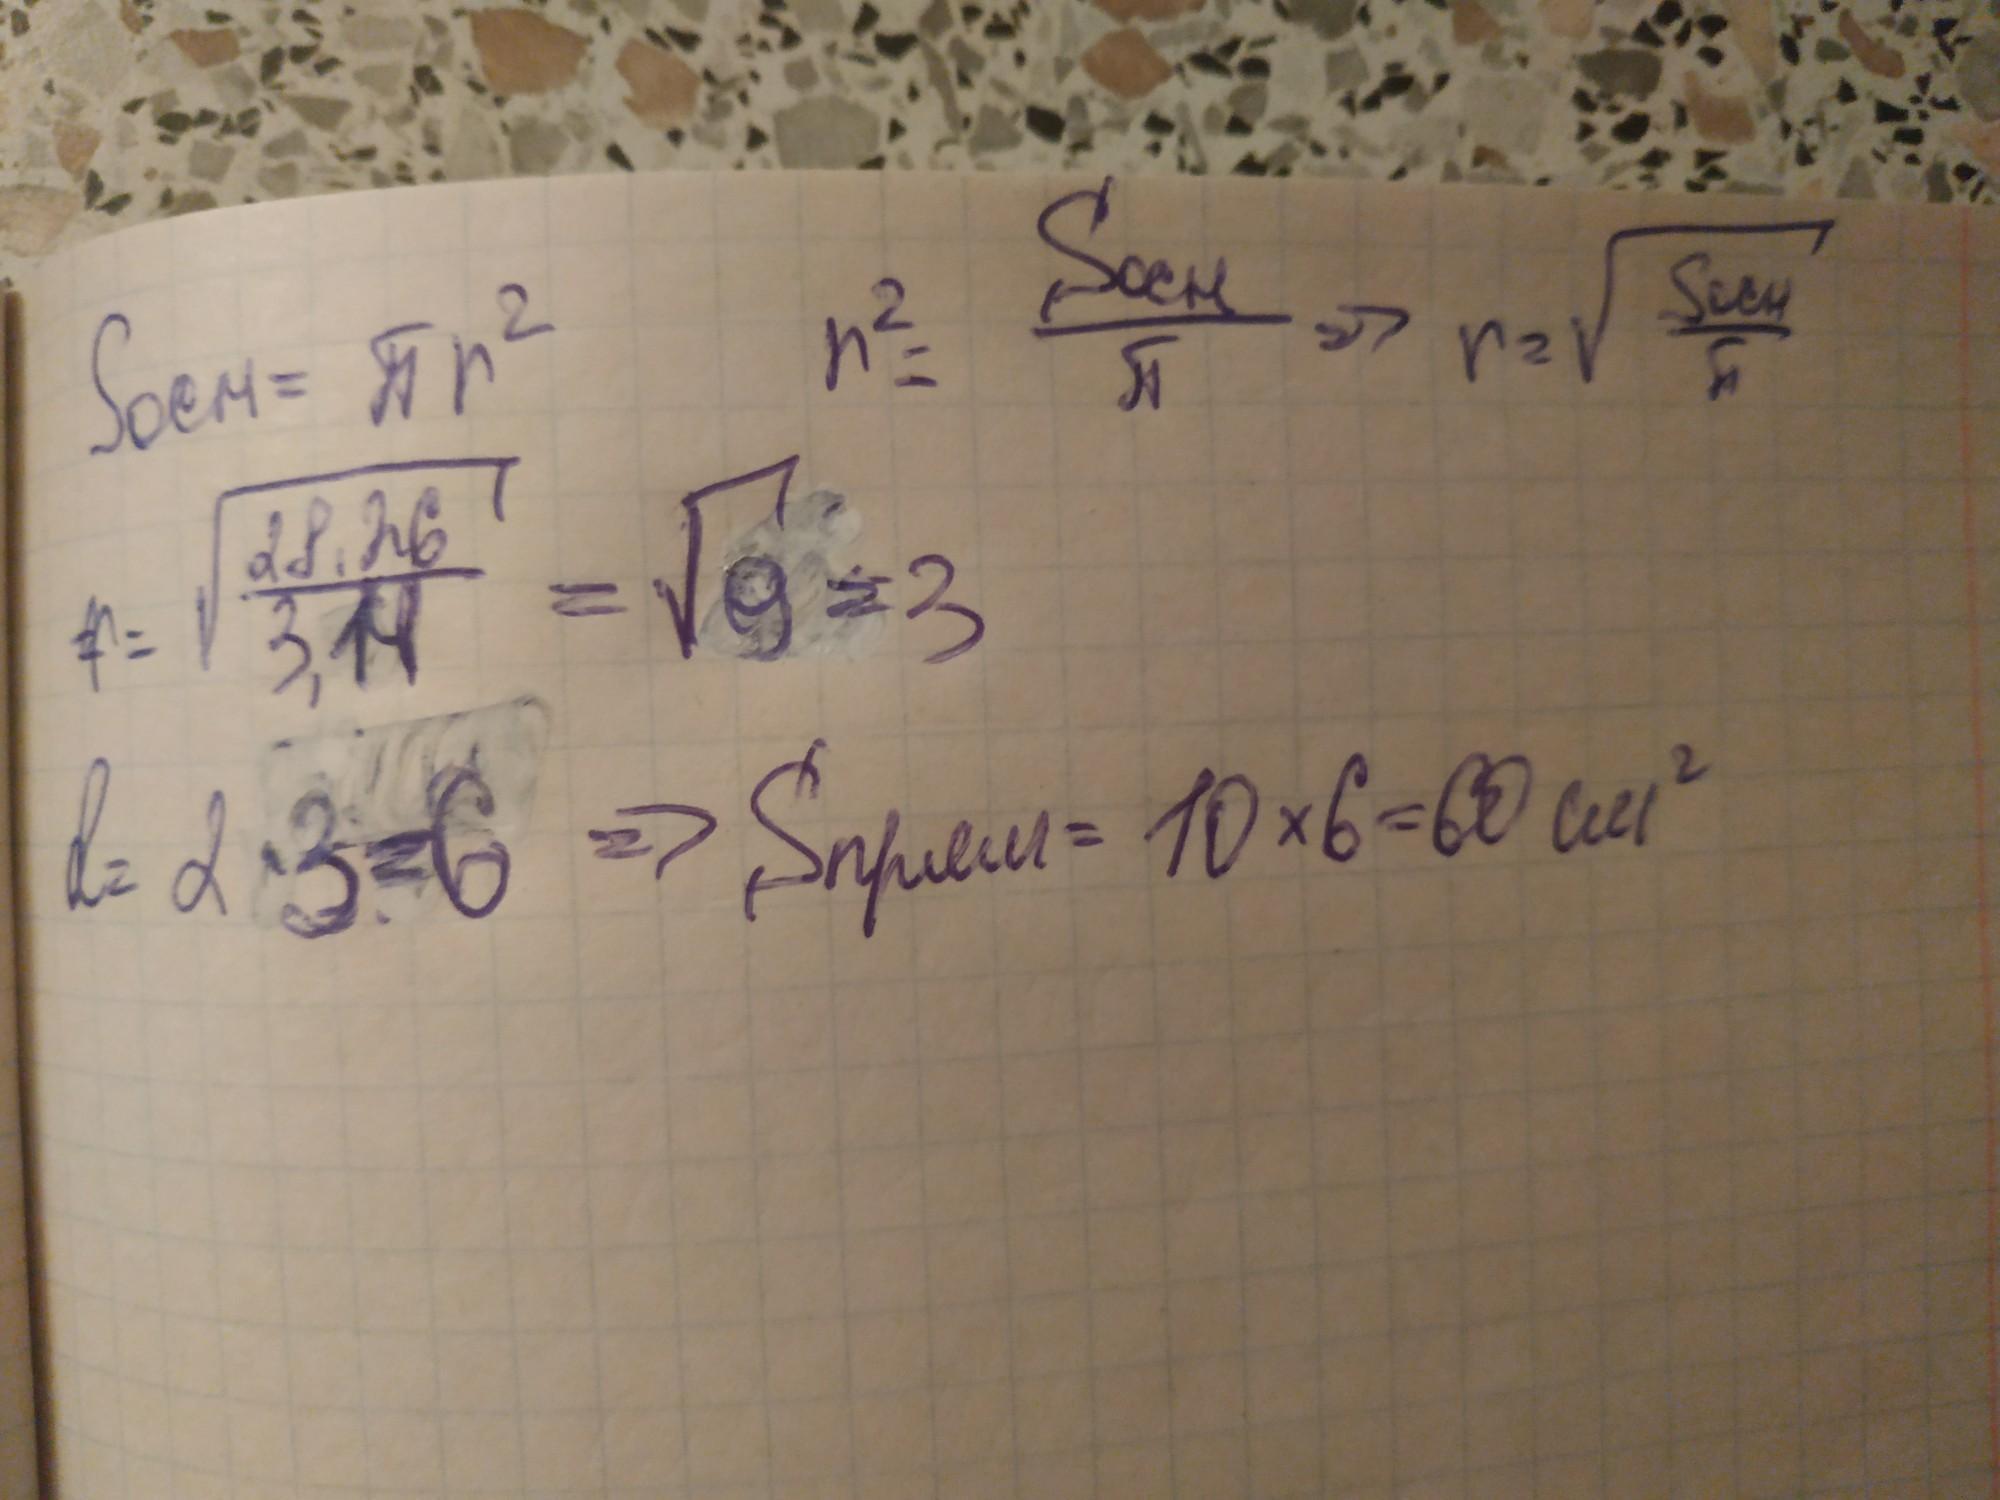 Sосн = πr² r² = Sосн/π => r = √(Sосн/π)
r = √(28.26/3,14) = √9 = 3
d = 2 · 3 = 6 => Sпрям = 10 × 6 = 60 см²